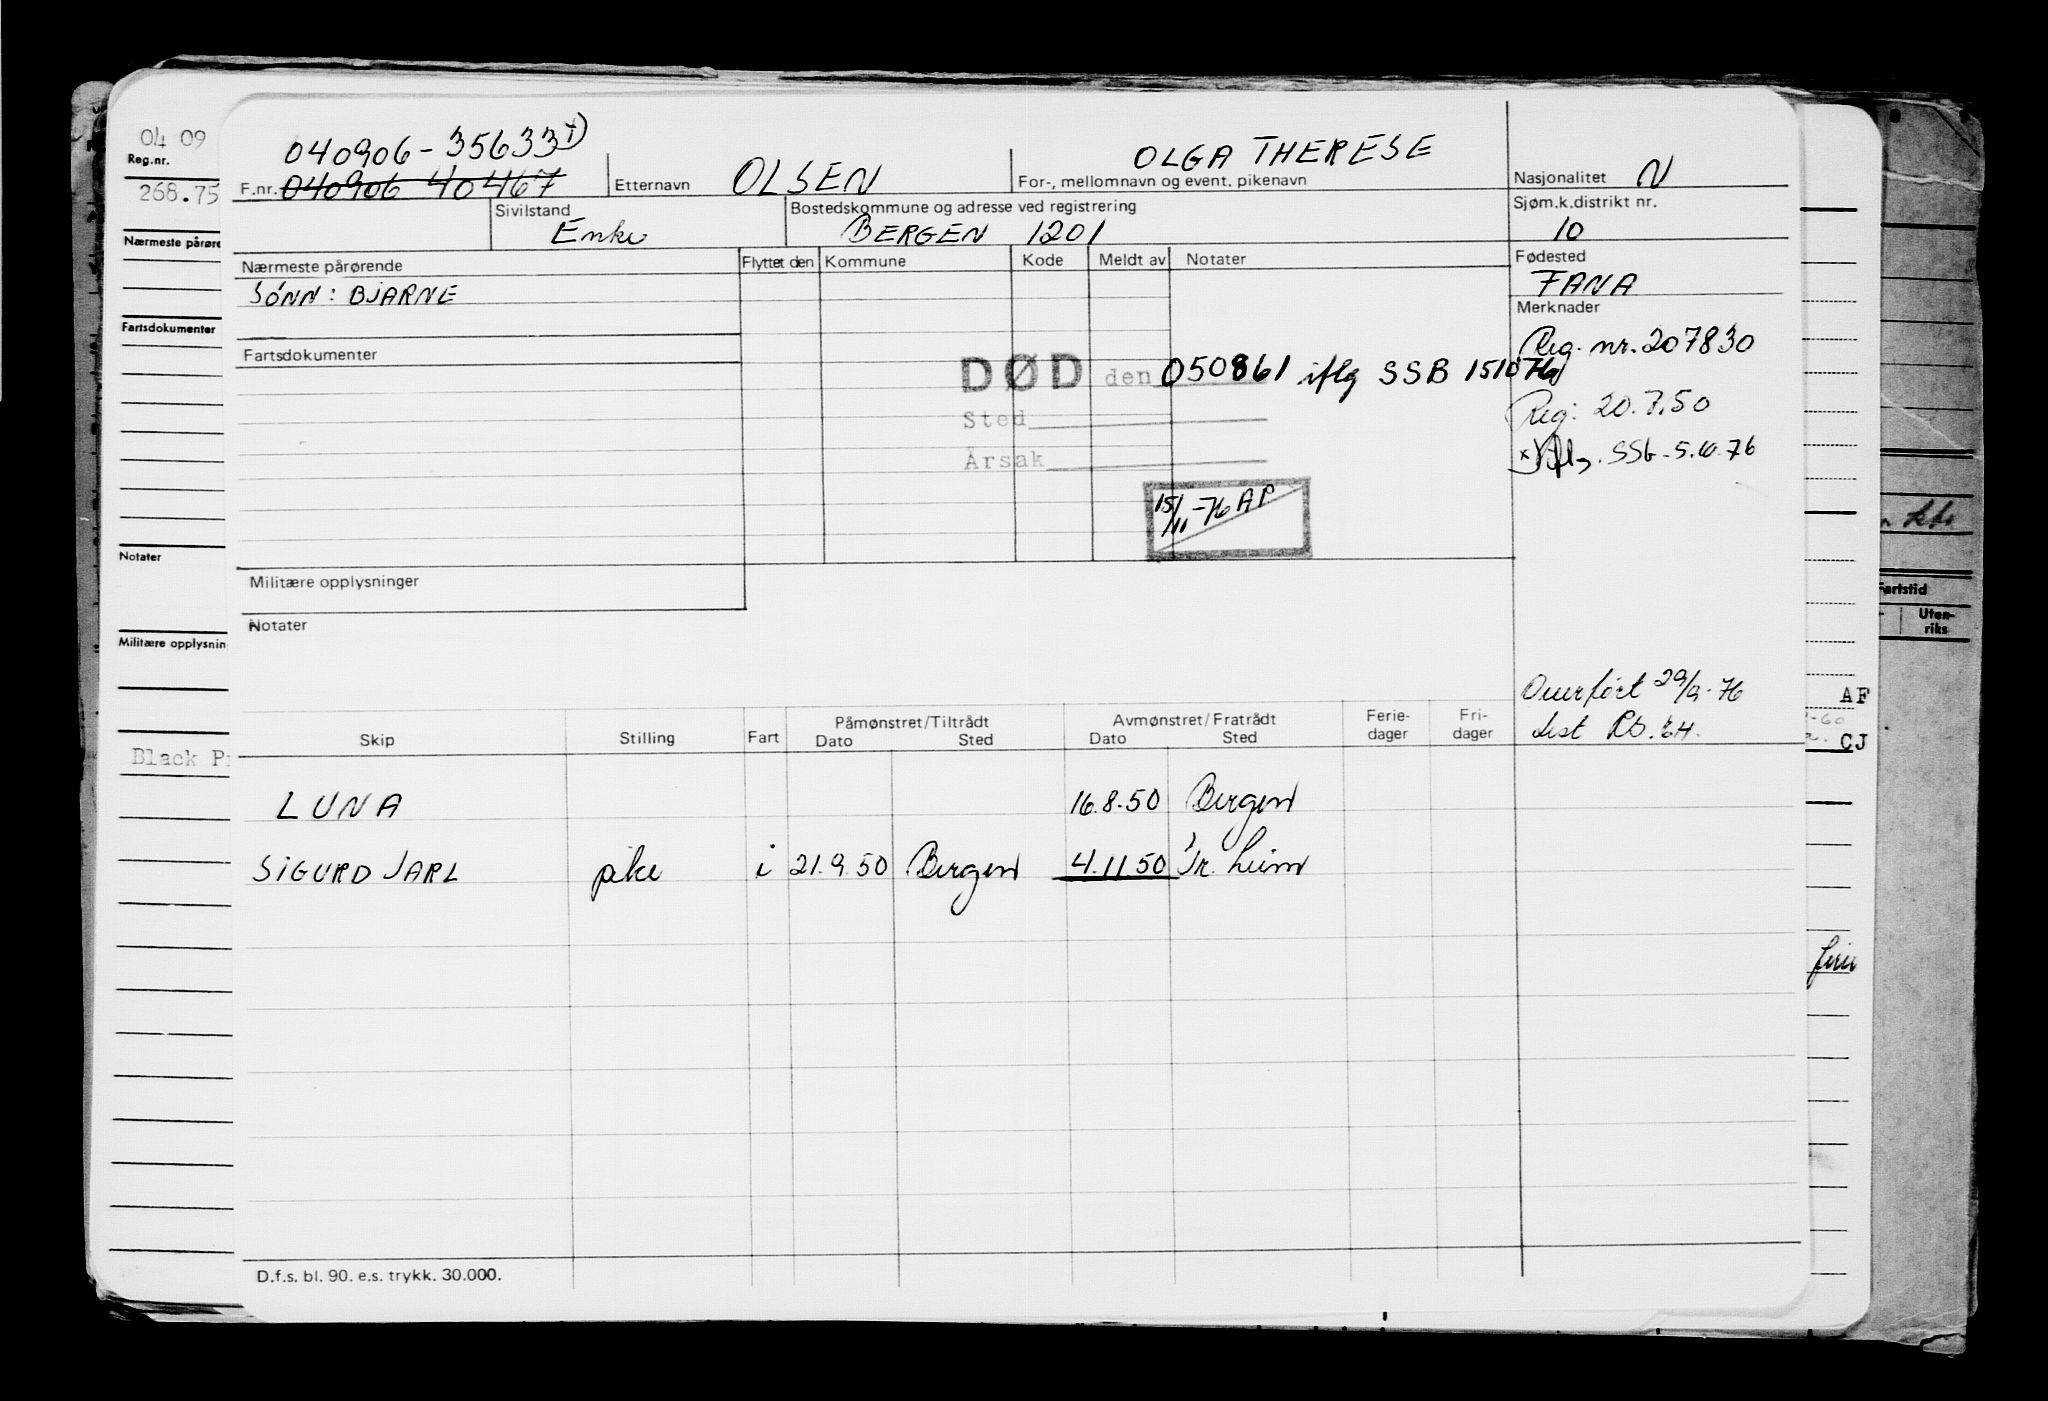 040906-35633 x)
F.nr. 040906 40467
Etternavn OLSEN
OLGA THERESE
For-, mellomnavn og event. pikenavn
Nasjonalitet N
Sivilstand
Enke
Bostedskommune og adresse ved registrering
BERGEN 1201
Sjøm.k.distrikt nr.
10
Nærmeste pårørende
SÖNN: BJARNE
Flyttet den Kommune Kode Meldt av Notater
Fødested
FANA
Merknader
Reg. nr. 207830
Fartsdokumenter
DØD den 050861 iflg SSB 151076
Sted
Årsak
Reg: 20.7.50
x) Iflg. SSb-5.10.76
15/11-76 AP
Militære opplysninger
Notater
Overført 29/9-76
Skip Stilling Fart Påmønstret/Tiltrådt Dato Sted Avmønstret/Fratrådt Dato Sted Ferie-dager Fri-dager
LUNA 16.8.50 Bergen
SIGURD JARL pike i 21.9.50 Bergen 4.11.50 Tr.heim
D.f.s. bl. 90. e.s. trykk. 30.000.
04 09
Reg.nr.
268.75
Nærmeste pårøre
Fartsdokumenter
Notater
Militære opplysnin
Black P
Fartstid
Uten-
riks
AF
CJ